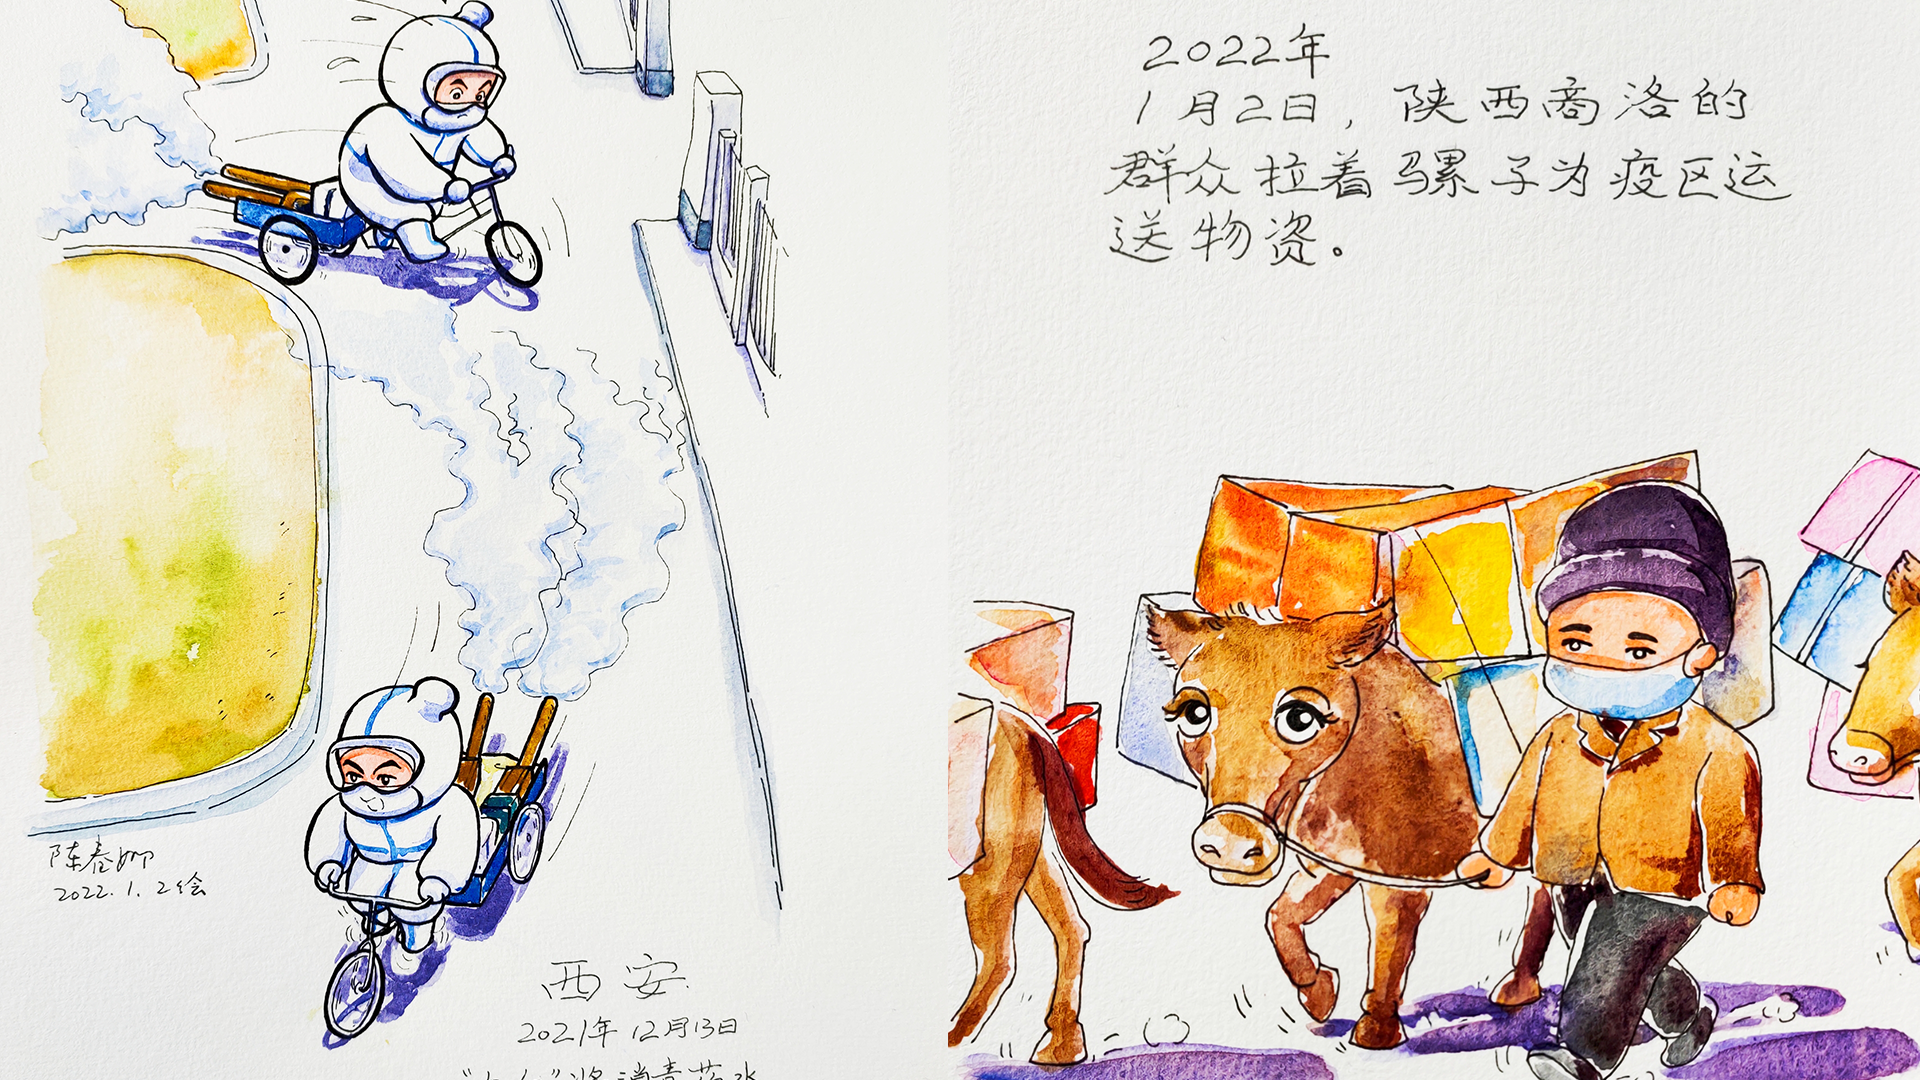 陈春娜
2022.1.2绘
西安
2021年12月13日
消毒药水
2022年
1月2日，陕西商洛的
群众拉着骡子为疫区运
送物资。